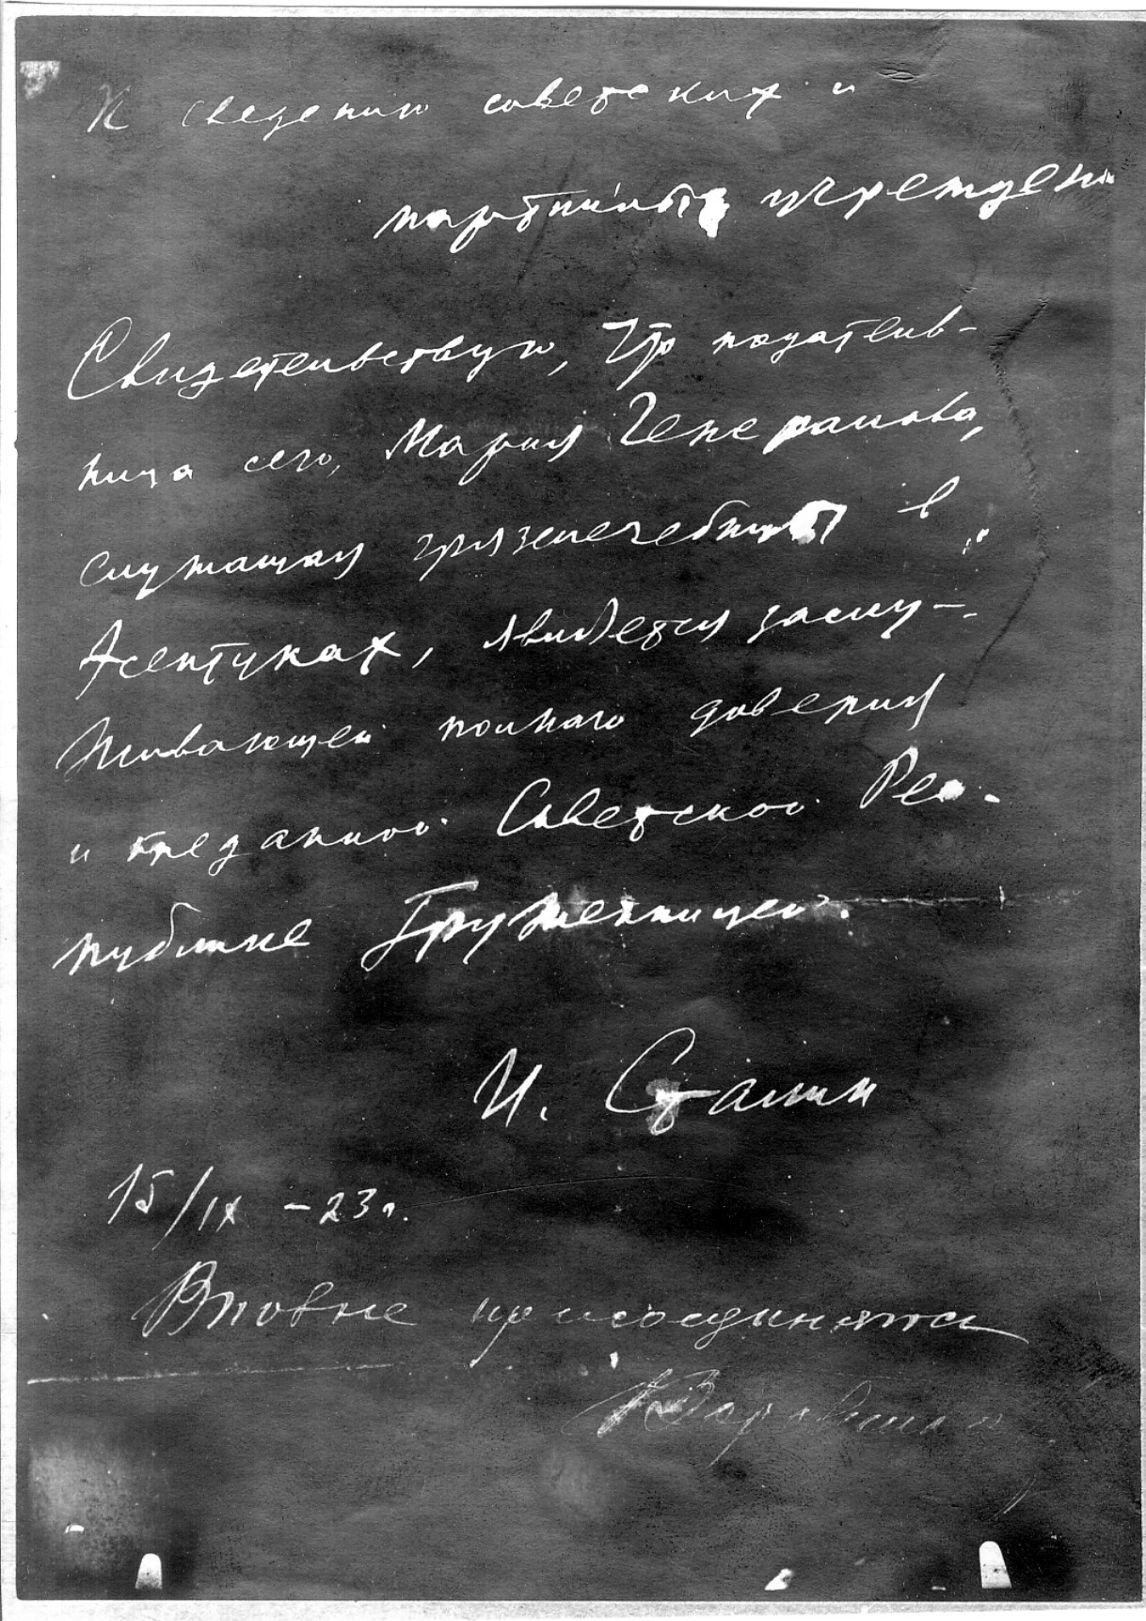 К сведению советских и
партийных учрежден
Свидетельствую, что податель-
ница сего, Мария Генералова,
служащая грязелечебницы в
Ясентуках, является заслу-
живающей полнаго доверия
и преданной Советской Рес-
публике труженицей.
И. Сталин
15/IX –23г.
Вполне присоединяюсь
К Ворошилов